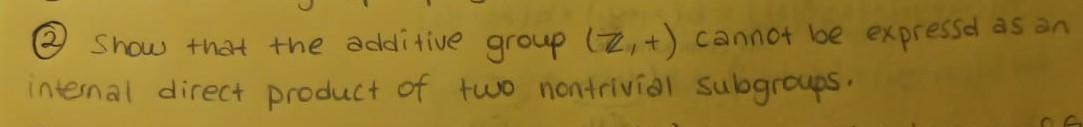 ② Show that the additive group (ℤ,+) cannot be expressd as an
internal direct product of two nontrivial subgroups.